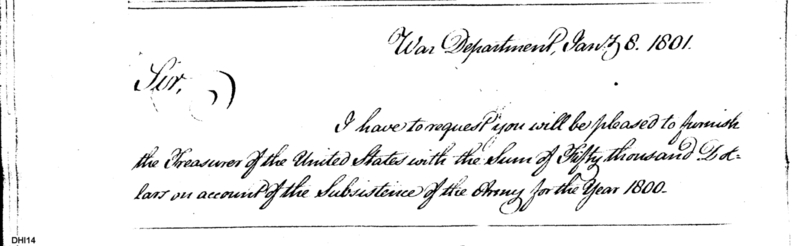 War Department, Jany 8. 1801.
Sir,
I have to request you will be pleased to furnish
the Treasurer of the United States with the Sum of Fifty thousand Dol-
lars on account of the Subsistence of the Army for the Year 1800.
DHI14